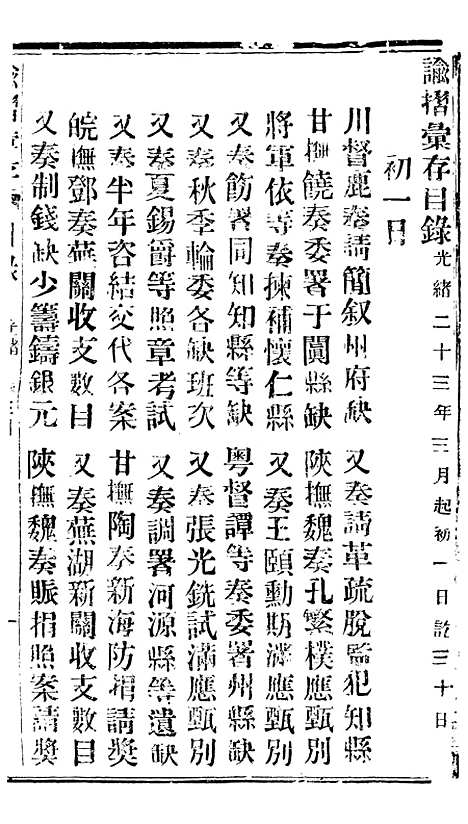 諭摺彙存目錄 光緒二十三年三月起初一日訖三十日
初一日
川督鹿奏請簡叙州府缺 又奏請革疏脫監犯知縣
甘撫饒奏委署于闐縣缺 陝撫魏奏孔繁樸應甄別
將軍依等奏揀補懷仁縣 又奏王頤勳期滿應甄別
又奏飭署同知知縣等缺 粵督譚等奏委署州縣缺
又奏秋季輪委各缺班次 又奏張光銑試滿應甄別
又奏夏錫爵等照章考試 又奏調署河源縣等遺缺
又奏半年咨結交代各案 甘撫陶奏新海防捐請獎
皖撫鄧奏蕪關收支數目 又奏蕪湖新關收支數目
又奏制錢缺少籌鑄銀元 陝撫魏奏賑捐照案請獎